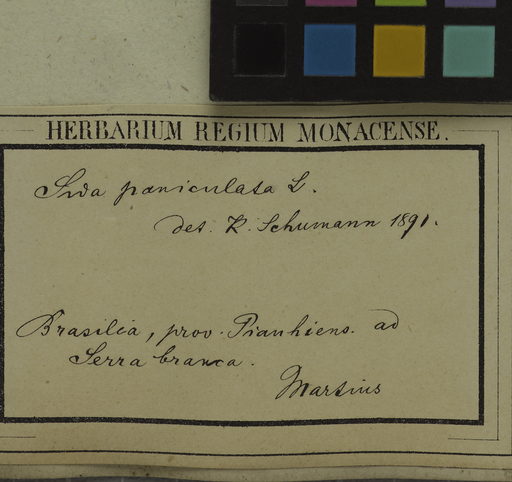 HERBARIUM REGIUM MONACENSE.
Sida paniculata L.
det. K. Schumann 1891.
Brasilia, prov. Piauhiens. ad
Serra branca.
Martius